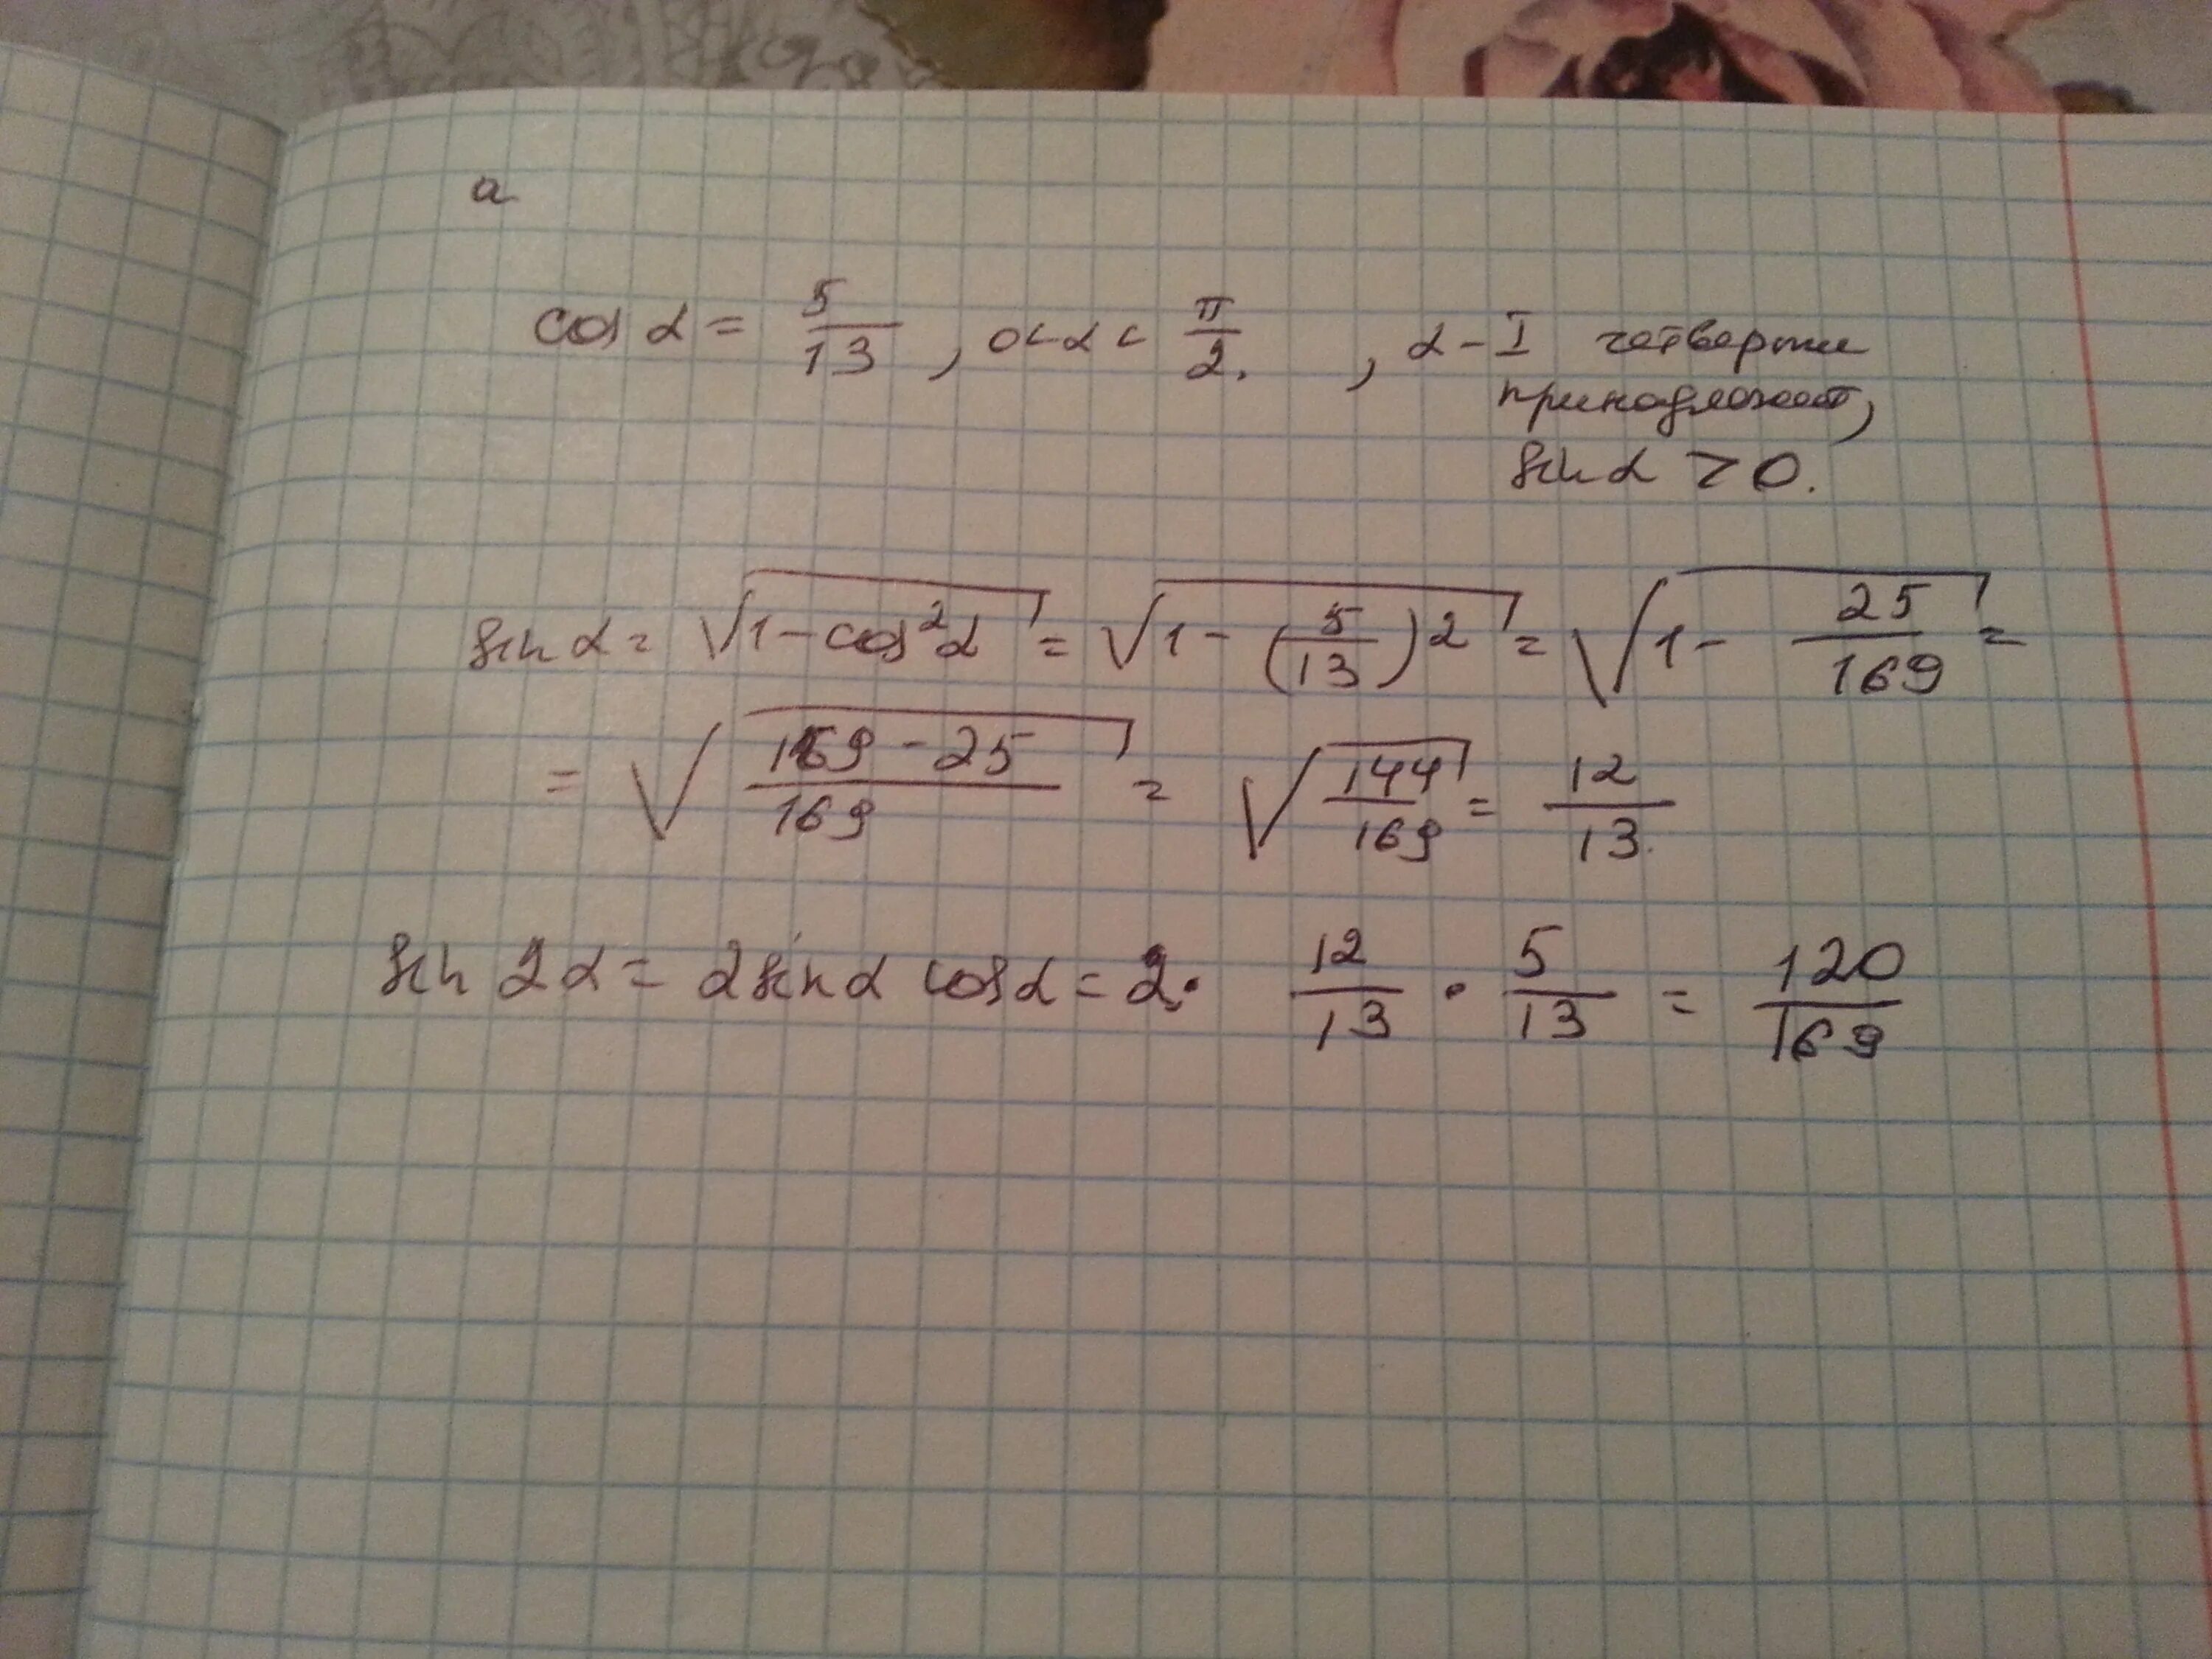 а
cos α = 5/13 , 0 < α < π/2. , α - I четверти
принадлежит,
sin α > 0.
sin α = √(1 - cos²α) = √(1 - (5/13)2) = √(1 - 25/169) =
= √((169 - 25)/169) = √(144/169) = 12/13.
sin 2α = 2 sin α cos α = 2 · 12/13 · 5/13 = 120/169